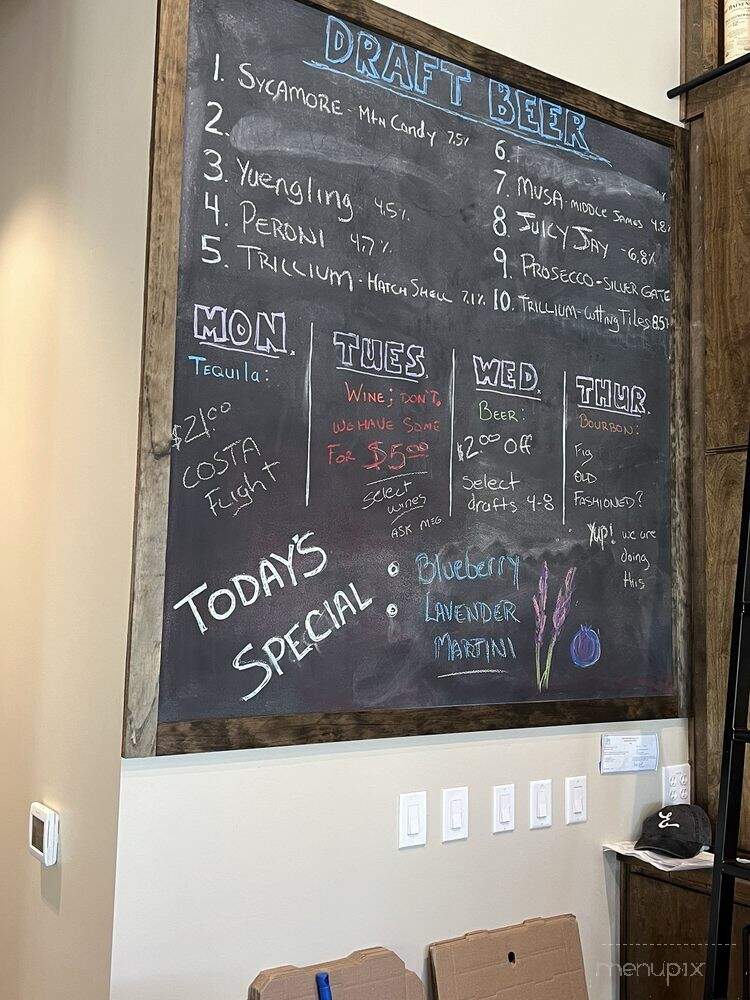 DRAFT BEER
1. SYCAMORE - Mtn Candy 7.5%
2.
3. Yuengling 4.5%
4. PERONI 4.7%
5. TRILLIUM - HATCH SHELL 7.1%
6.
7. MUSA - MIDDLE JAMES 4.8%
8. JUICY JAY - 6.8%
9. PROSECCO - SILVER GATE
10. TRILLIUM - Cutting Tiles 8.5%
MON.
TEQUILA:
$21.00
COSTA
Flight
TUES.
WINE; DON'T.
WE HAVE SOME
FOR $5.00
Select
wines
ASK MEG
WED.
BEER:
$2.00 Off
Select
drafts 4-8
THUR.
BOURBON:
Fig
OLD
FASHIONED?
Yup! we are
doing
this
TODAY'S
SPECIAL
Blueberry
LAVENDER
MARTINI
menupix